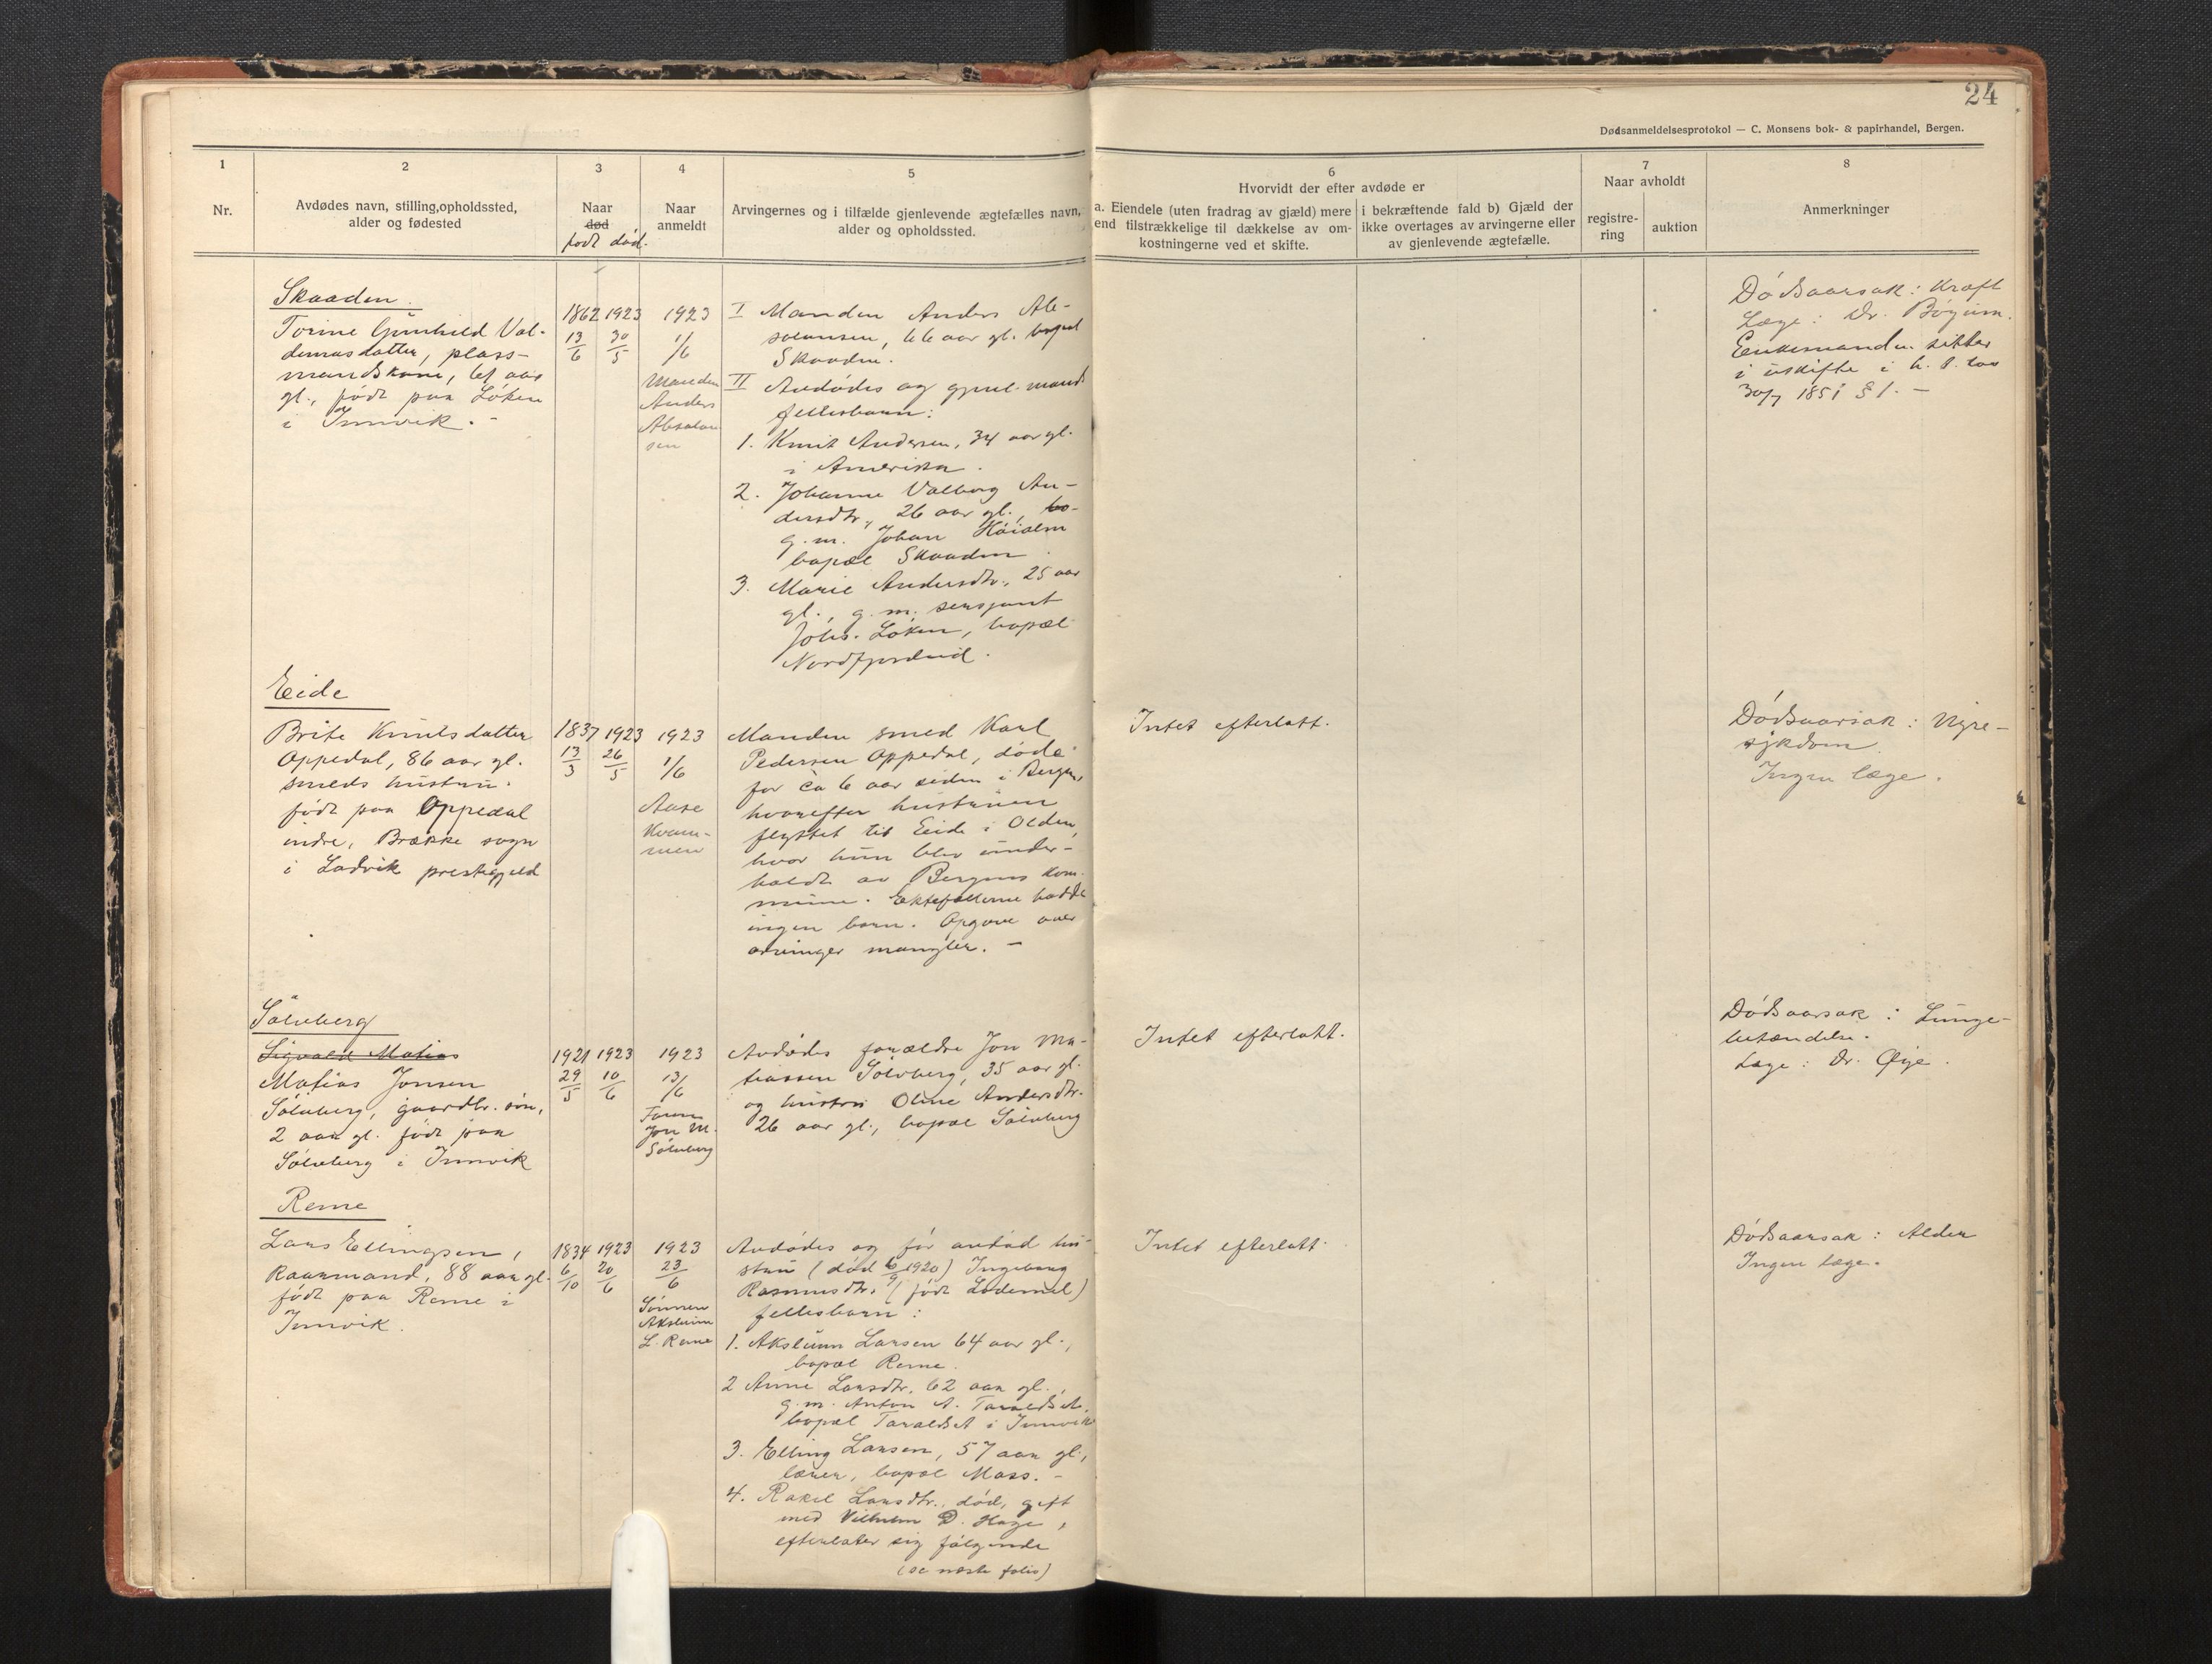 24
Dødsanmeldelsesprotokol — C. Monsens bok- & papirhandel, Bergen.
1
2
3
4
5
6
7
8
Nr.
Avdødes navn, stilling, opholdssted,
alder og fødested
Naar
død
født død.
Naar
anmeldt
Arvingernes og i tilfælde gjenlevende ægtefælles navn,
alder og opholdssted.
Hvorvidt der efter avdøde er
a. Eiendele (uten fradrag av gjæld) mere
end tilstrækkelige til dækkelse av om-
kostningerne ved et skifte.
i bekræftende fald b) Gjæld der
ikke overtages av arvingerne eller
av gjenlevende ægtefælle.
Naar avholdt
registre-
ring
auktion
Anmerkninger
Skaaden.
Torine Gunhild Val-
demarsdatter, plass-
mandskone, 61 aar
gl., født paa Løken
i Innvik. -
1862 1923
13/6 30/5
1923
1/6
Manden
Anders
Absalon
sen
I Manden Anders Ab-
salonsen, 66 aar gl. bopæl
Skaaden.
II Avdødes og gjenl. mands
fellesbarn:
1. Knut Andersen, 34 aar gl.
i Amerika.
2. Johanne Valborg An-
dersdtr., 26 aar gl., bo-
g. m. Johan
bopæl Skaaden
3. Marie Andersdtr., 25 aar
gl., g. m. sersjant
Johs. Løken, bopæl
Nordfjordeid.
Dødsaarsak: Kræft
Læge: Dr.
Enkemanden sitter
i uskifte i h. t. lov
30/7 1851 § 1. -
Eide
Brite Knutsdatter
Oppedal, 86 aar gl.
smeds hustru.
født paa Oppedal
indre, Brække sogn
i Ladvik prestegjeld
1837 1923
13/3 26/5
1923
1/6
Aase
Kvam-
men
Manden smed Karl
Pedersen Oppedal, døde
for ca 6 aar siden i Bergen,
hvorefter hustruen
flyttet til Eide i Olden,
hvor hun blev under-
holdt av Bergens kom-
mune. Ektefellerne hadde
ingen barn. Opgave over
arvinger mangler. -
Intet efterlatt.
Dødsaarsak: Nyre-
sykdom.
Ingen læge.
Sølvberg
Sigvald Matias
Matias Jonsen
Sølvberg, gaardbr. søn,
2 aar gl. født paa
Sølvberg i Innvik
1921 1923
29/5 10/6
1923
13/6
Faren
Jon M.
Sølvberg
Avdødes forældre Jon Ma-
tiassen Sølvberg, 35 aar gl.
og hustru Oline Andersdtr.
26 aar gl., bopæl Sølvberg
Intet efterlatt.
Dødsaarsak: Lunge-
betændelse.
Læge: Dr. Øye.
Reme
Lars Ellingsen,
kaarmand, 88 aar gl.
født paa Reme i
Innvik.
1834 1923
6/10 20/6
1923
23/6
Sønnen
Aksluinn
L. Reme
Avdødes og før avdød hu-
stru (død 6/9 1920) Ingeborg
Rasmusdtr. (født Lødemel)
fellesbarn:
1. Aksluinn Larsen 64 aar gl.,
bopæl Reme.
2 Anne Larsdtr. 62 aar gl.,
g. m. Anton A. Taraldset.
bopæl Taraldset i Innvik
3. Elling Larsen, 57 aar gl.,
lærer, bopæl Moss. -
4. Rakel Larsdtr., død, gift
med Vilhelm D. Hage,
efterlater sig følgende
(se næste folio)
Intet efterlatt.
Dødsaarsak: Alder
Ingen læge.